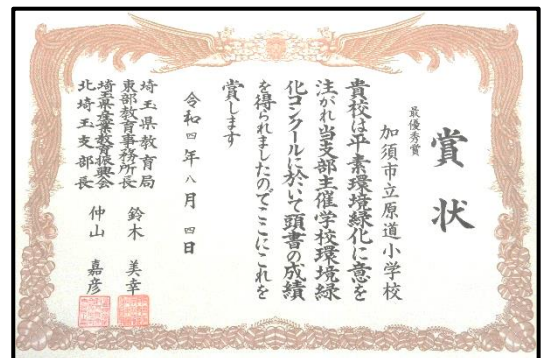 賞状
最優秀賞
加須市立原道小学校
貴校は平素環境緑化に意を
注がれ当支部主催学校環境緑
化コンクールに於いて頭書の成績
を得られましたのでここにこれを
賞します
令和四年八月四日
埼玉県教育局
東部教育事務所長 鈴木美幸
埼玉県産業教育振興会
北埼玉支部長 仲山嘉彦